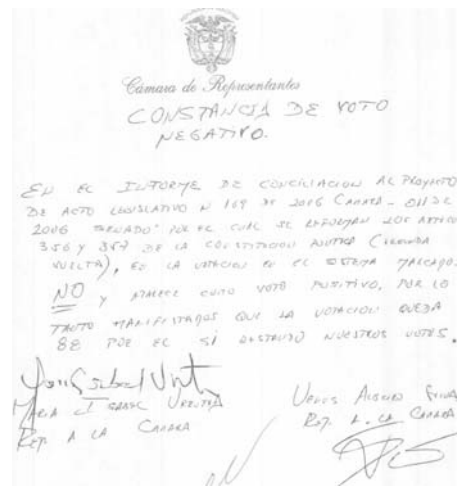 Cámara de Representantes
CONSTANCIA DE VOTO
NEGATIVO.
EN EL INFORME DE CONCILIACION AL PROYECTO
DE ACTO LEGISLATIVO N 169 DE 2006 CAMARA - 011 DE
2006 SENADO" POR EL CUAL SE REFORMAN LOS
356 Y 357 DE LA CONSTITUCION POLITICA (SEGUNDA
VUELTA), EN LA VOTACION EN EL SISTEMA MARCAMOS
NO Y APARECE COMO VOTO POSITIVO, POR LO
TANTO MANIFESTAMOS QUE LA VOTACION QUEDA
88 POR EL SI NUESTROS VOTOS.
MARIA ISABEL URRUTIA
REP. A LA CAMARA
VENUS ALBEIRO SILVA
REP. A LA CAMARA